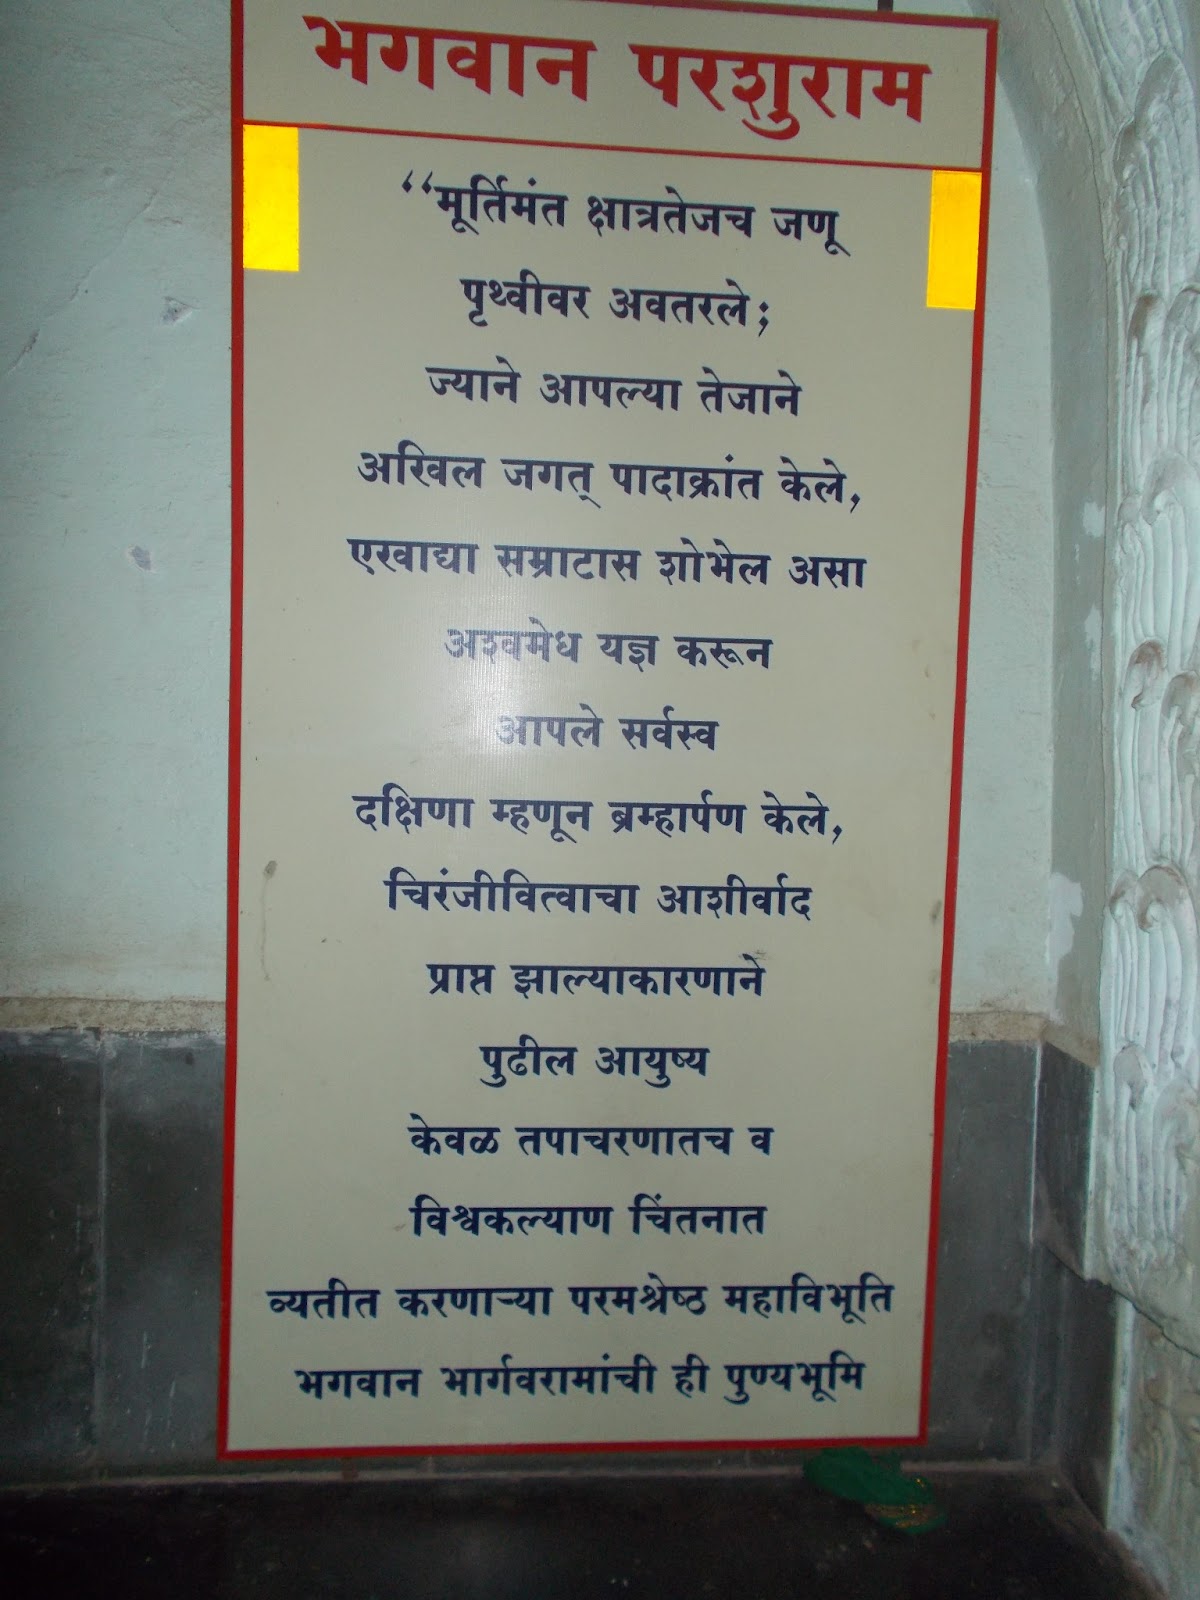 भगवान परशुराम
“मूर्तिमंत क्षात्रतेजच जणू
पृथ्वीवर अवतरले;
ज्याने आपल्या तेजाने
अखिल जगत् पादाक्रांत केले,
एखाद्या सम्राटास शोभेल असा
अश्वमेध यज्ञ करून
आपले सर्वस्व
दक्षिणा म्हणून ब्रम्हार्पण केले,
चिरंजीवित्वाचा आशीर्वाद
प्राप्त झाल्याकारणाने
पुढील आयुष्य
केवळ तपाचरणातच व
विश्वकल्याण चिंतनात
व्यतीत करणाऱ्या परमश्रेष्ठ महाविभूति
भगवान भार्गवरामांची ही पुण्यभूमि